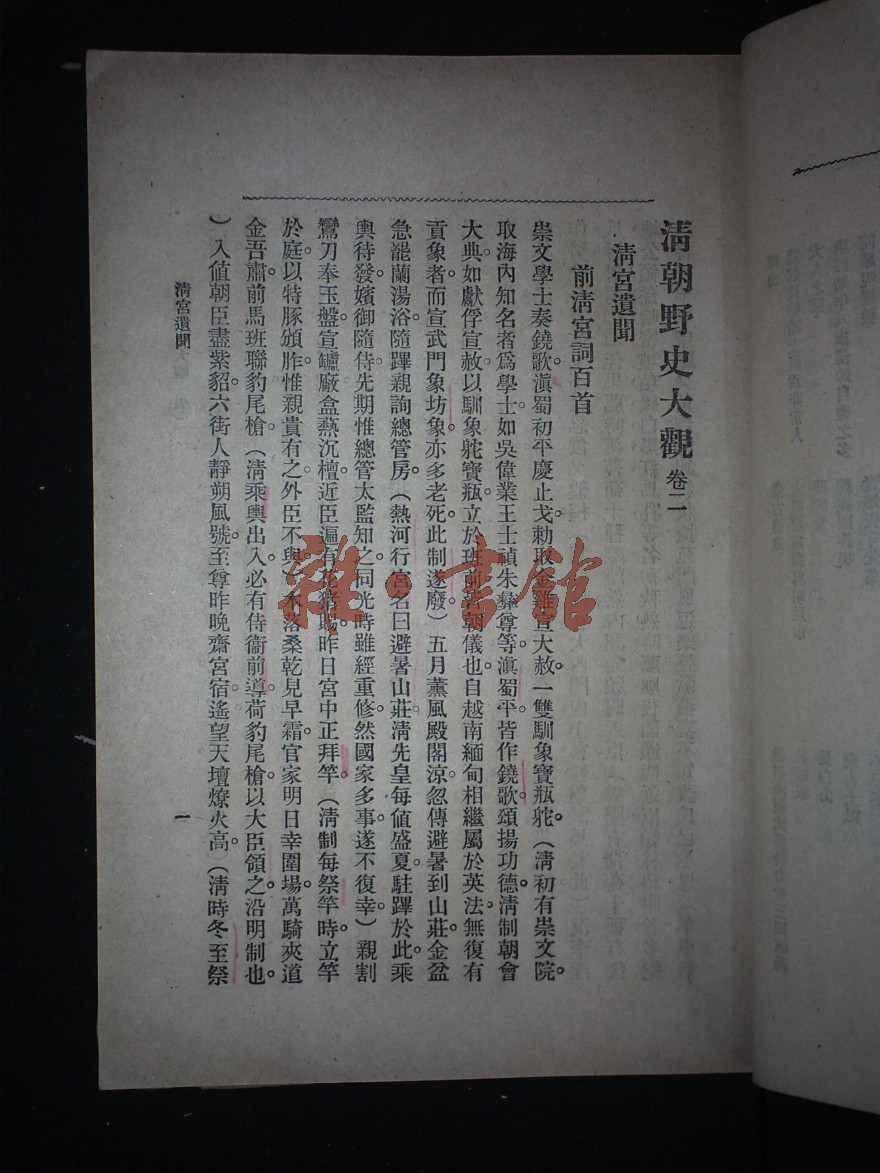 清朝野史大觀 卷二
清宮遺聞
前清宮詞百首
崇文學士奏鐃歌。滇蜀初平慶止戈。勅取金雞宣大赦。一雙馴象寶瓶𦨻。(清初有崇文院。
取海內知名者爲學士。如吳偉業王士禎朱彝尊等。滇蜀平。皆作鐃歌。頌揚功德。清制朝會
大典。如獻俘宣赦。以馴象𦨻寶瓶。立於班前。著朝儀也。自越南緬甸相繼屬於英法。無復有
貢象者。而宣武門象坊象。亦多老死。此制遂廢。)五月薰風殿閣涼。忽傳避暑到山莊。金盆
急罷蘭湯浴。隨蹕親詢總管房。(熱河行宮名曰避暑山莊。清先皇每値盛夏。駐蹕於此。乘
輿待發。嬪御隨侍。先期惟總管太監知之。同光時雖經重修。然國家多事。遂不復幸。)親割
鸞刀奉玉盤。宣罏廠盒爇沉檀。近臣遍有花猪賜。昨日宮中正拜竿。(清制每祭竿時。立竿
於庭。以特豚頒胙。惟親貴有之。外臣不與。)木落桑乾見早霜。官家明日幸圍場。萬騎夾道
金吾肅。前馬班聯豹尾槍。(清乘輿出入。必有侍衞前導。荷豹尾槍。以大臣領之。沿明制也。
)入値朝臣盡紫貂。六街人靜朔風號。至尊昨晚齋宮宿。遙望天壇燎火高。(清時冬至祭
清宮遺聞
一
雜·書館